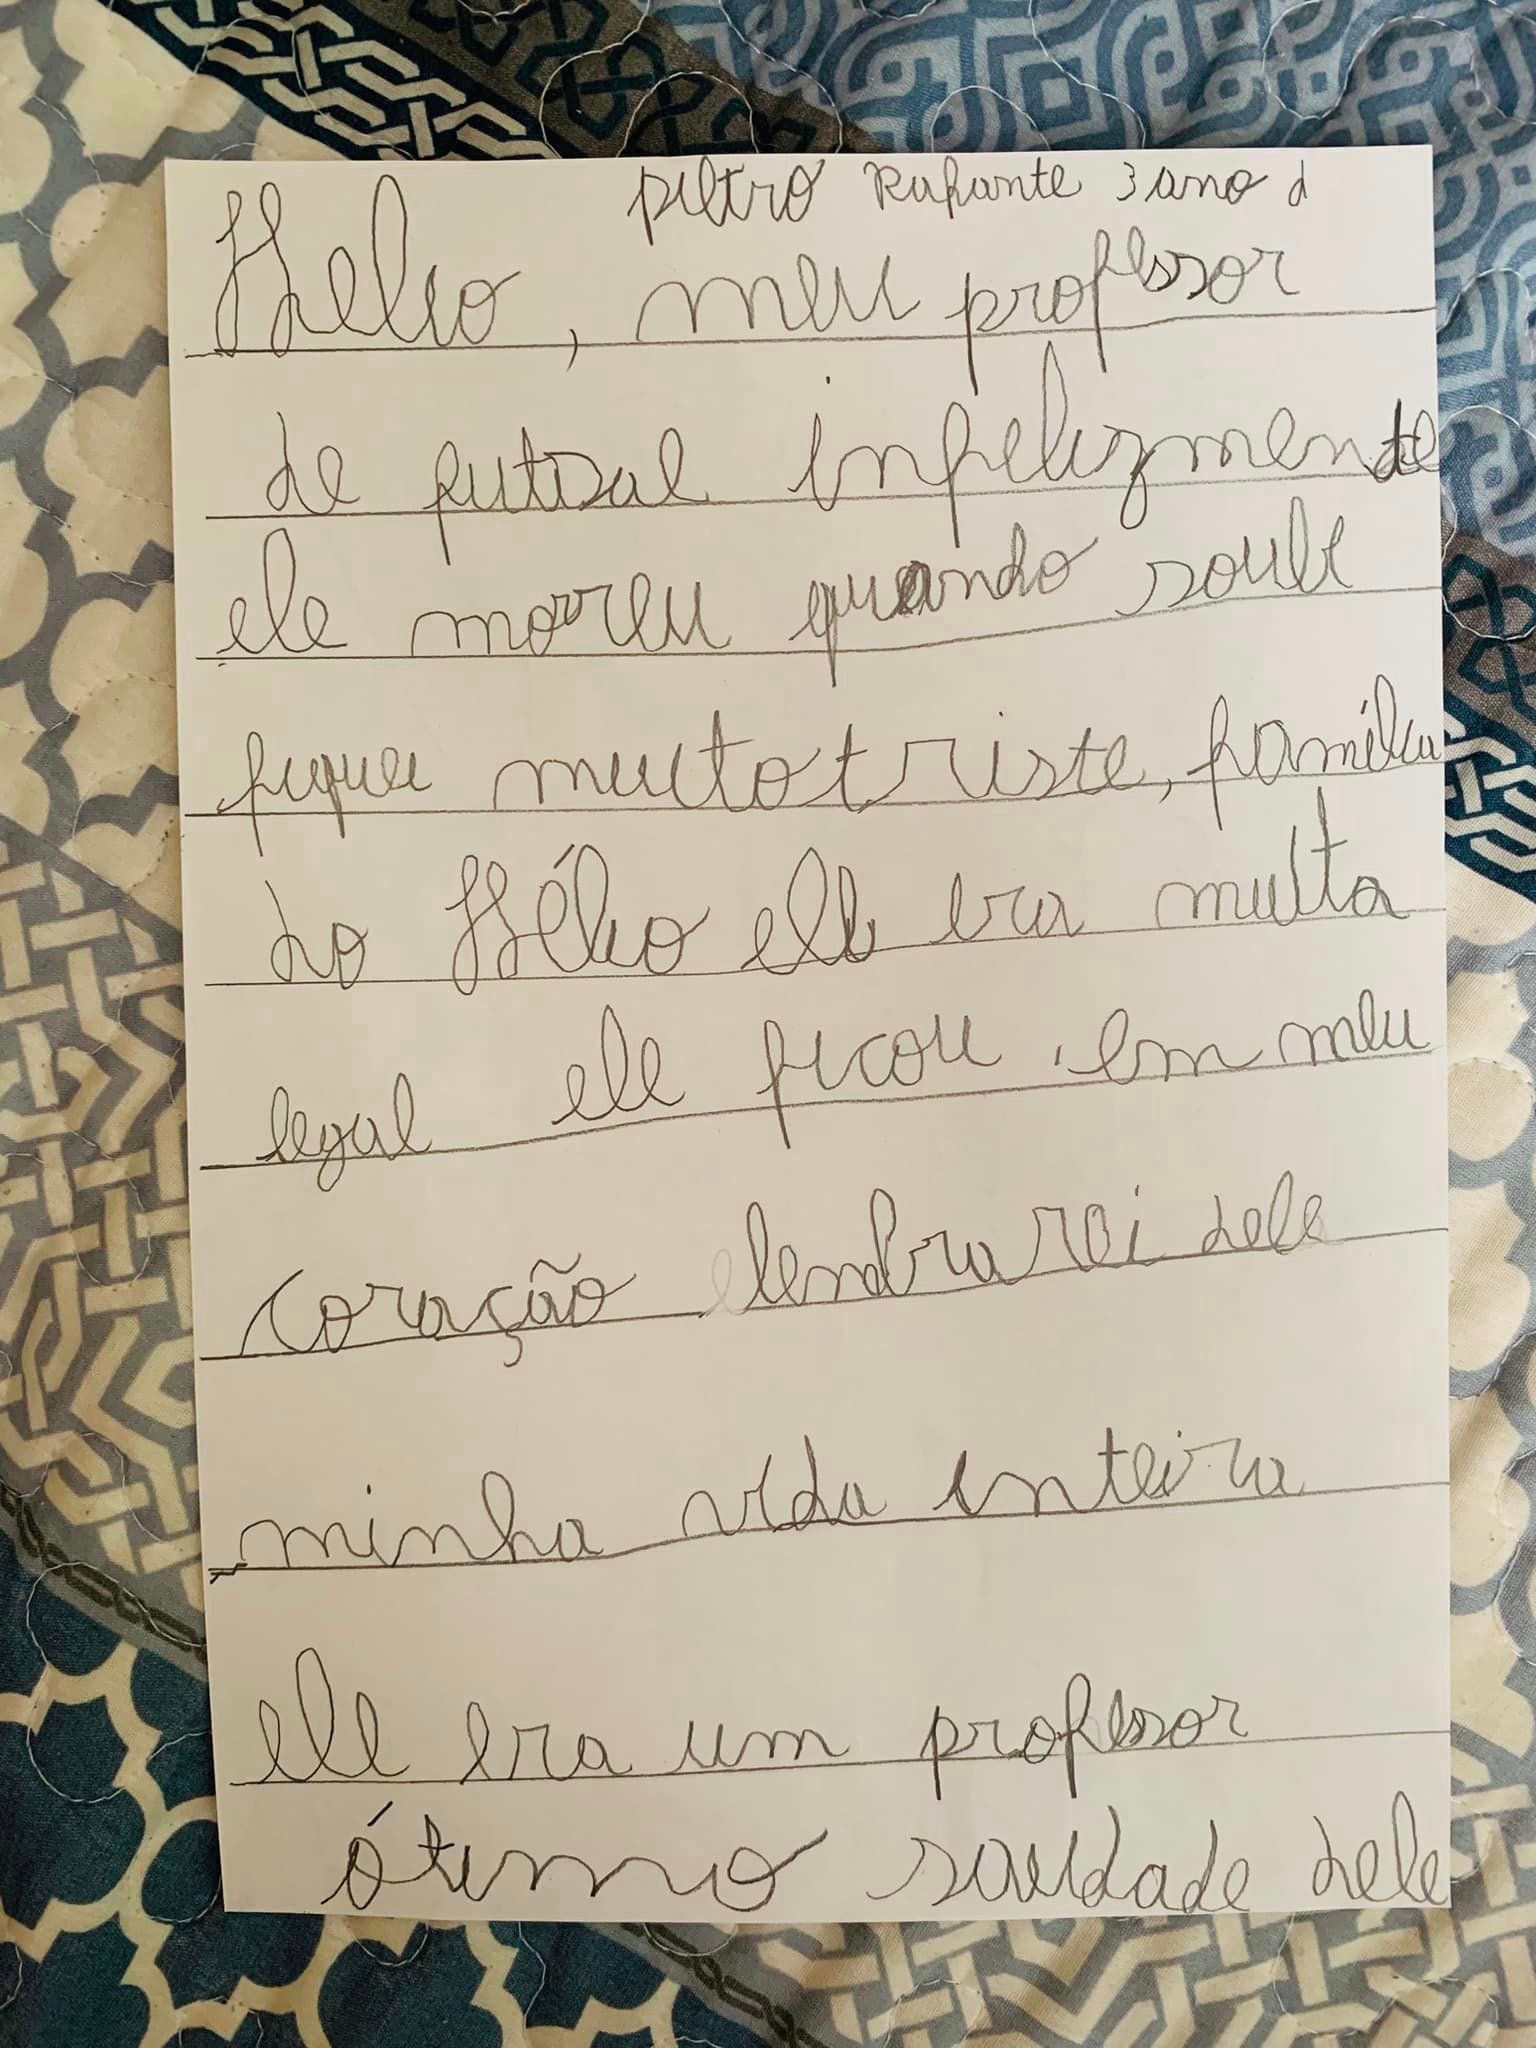 pietro Rafante 3 ano d
Helio, meu professor
de futsal infelizmente
ele morreu quando soube
fiquei muito triste, família
do Hélio ele era muito
legal ele ficou em meu
coração lembrarei dele
minha vida inteira
ele era um professor
ótimo saudade dele